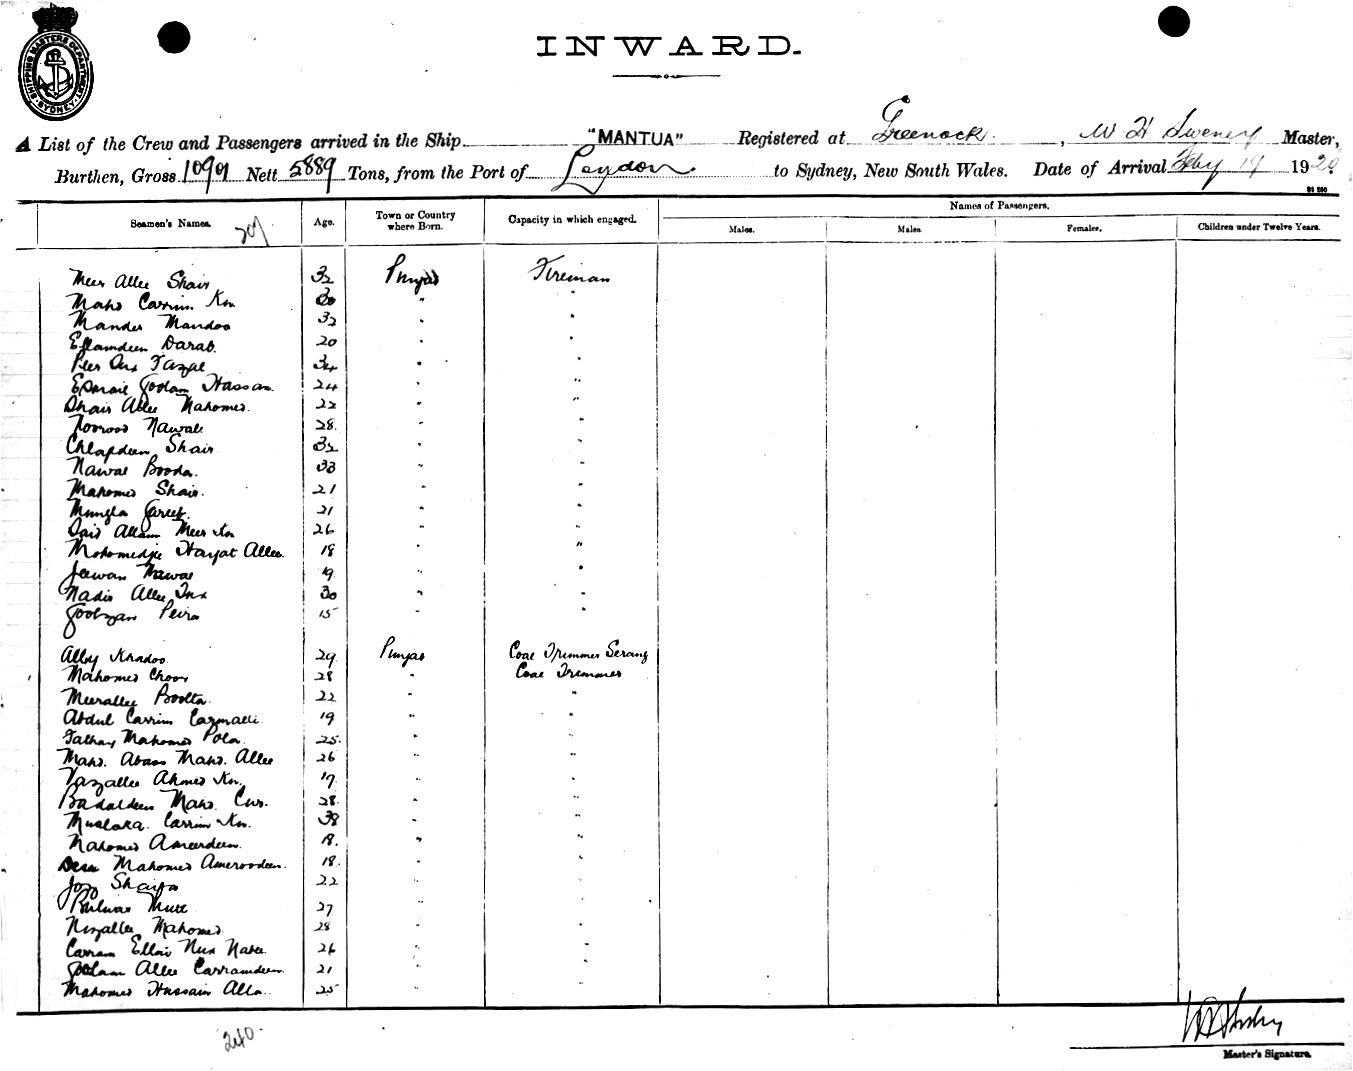 SHIPPING MASTERS DEPARTMENT SYDNEY
INWARD.
A List of the Crew and Passengers arrived in the Ship "MANTUA" Registered at Greenock, W H Sweney Master,
Burthen, Gross 10901 Nett 5889 Tons, from the Port of London to Sydney, New South Wales. Date of Arrival Feby 19 1920.
Names of Passengers.
Seamen's Names. Age. Town or Country where Born. Capacity in which engaged. Males. Males. Females. Children under Twelve Years.
Meer Allee Shair 32 Punjab Fireman
Mahd Carrim Kn "
Mander Mandoo 32 " "
Eflamdeen Darab. 20 " "
Peer Fazal 34 " "
Goolam Hassan 24 " "
Shair Allee Mahomed. 22 " "
Noorood Nawab 28. " "
Shair 32 " "
Nawab Booda. 33 " "
Mahomed Shair. 21 " "
Mungla 21 " "
Said Allam Meer Kn 26 " "
Mohomedjee Hayat Allee. 18 " "
Jeewan Nawab 19. " "
Nadir Allee 30 " "
Goolzan Peira 15 " "
Alley Khadoo 29 Punjab Coal Trimmer Serang
Mahomed Choor 28 " Coal Trimmer
Meerallee Bootta. 22 " "
Abdul Carrim Cazmalli 19 " "
Fathay Mahomed Pola. 25. " "
Mahd. Abass Mahd. Allee 26 " "
Fazallee Ahmed Kn. 19. " "
Badaldeen Mahd. 28. " "
Carrim Kn. 38 " "
Mahomed Ameerdeen. 18. " "
Mahomed Ameroodeen. 18. " "
22 " "
27 " "
Mahomed. 28 " "
Carram Ellai Nur Nabee 26 " "
Goolam Allee Carramdeen. 21 " "
Mahomed Hussain Alla. 25 " "
240.
Master's Signature.